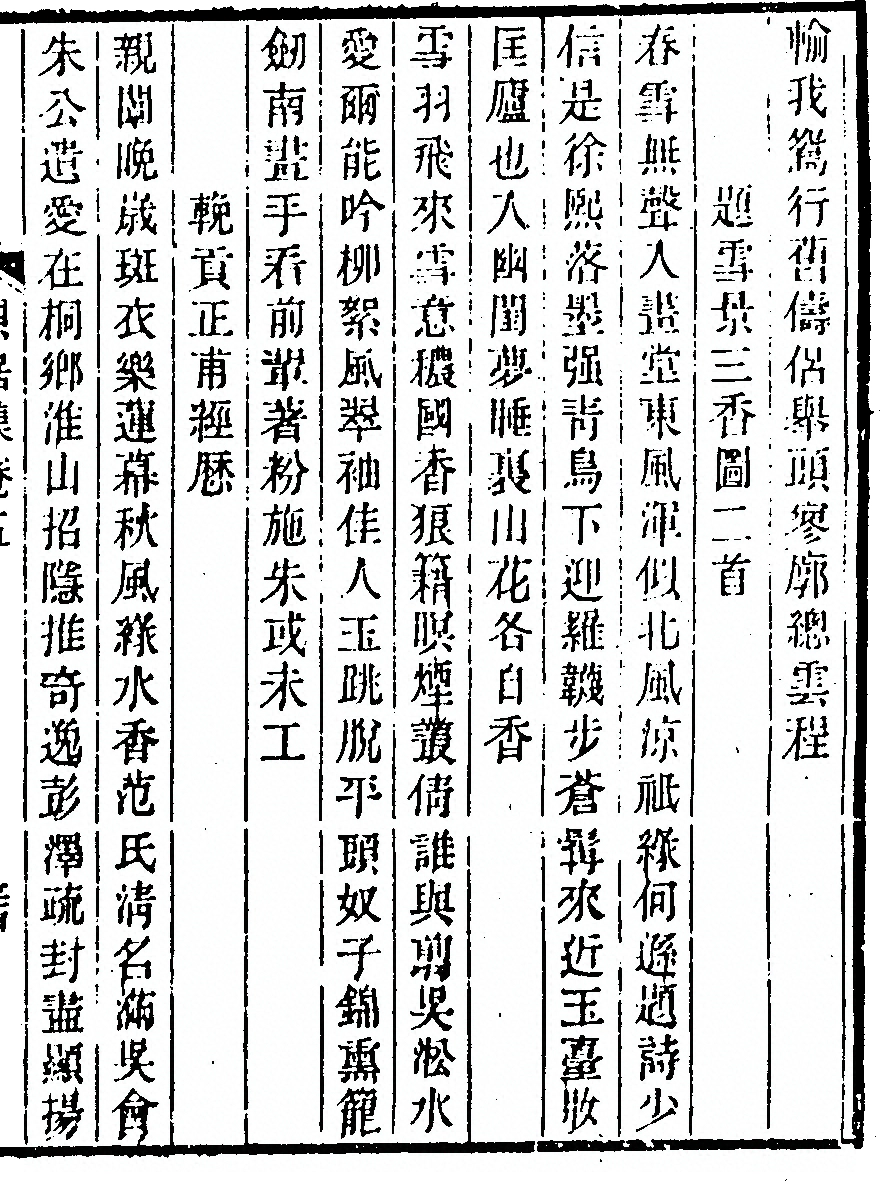 輸我鴛行舊儔侶舉頭寥廓總雲程
題雪景三香圖二首
春雪無聲人畫堂東風渾似北風涼祇緣何遜題詩少
信是徐熙落墨强靑鳥下迎羅韈步蒼髯來近玉臺妝
匡廬也入幽閨夢睡裏山花各自香
雪羽飛來雪意穠國香狼籍暝煙叢倩誰與剪吳淞水
愛爾能吟柳絮風翠袖佳人玉跳脫平頭奴子錦熏籠
劒南畫手看前輩著粉施朱或未工
輓貢正甫經歷
親闈晚歲斑衣樂蓮幕秋風綠水香范氏淸名滿吳會
朱公遺愛在桐鄉淮山招隱推奇逸彭澤疏封盡顯揚